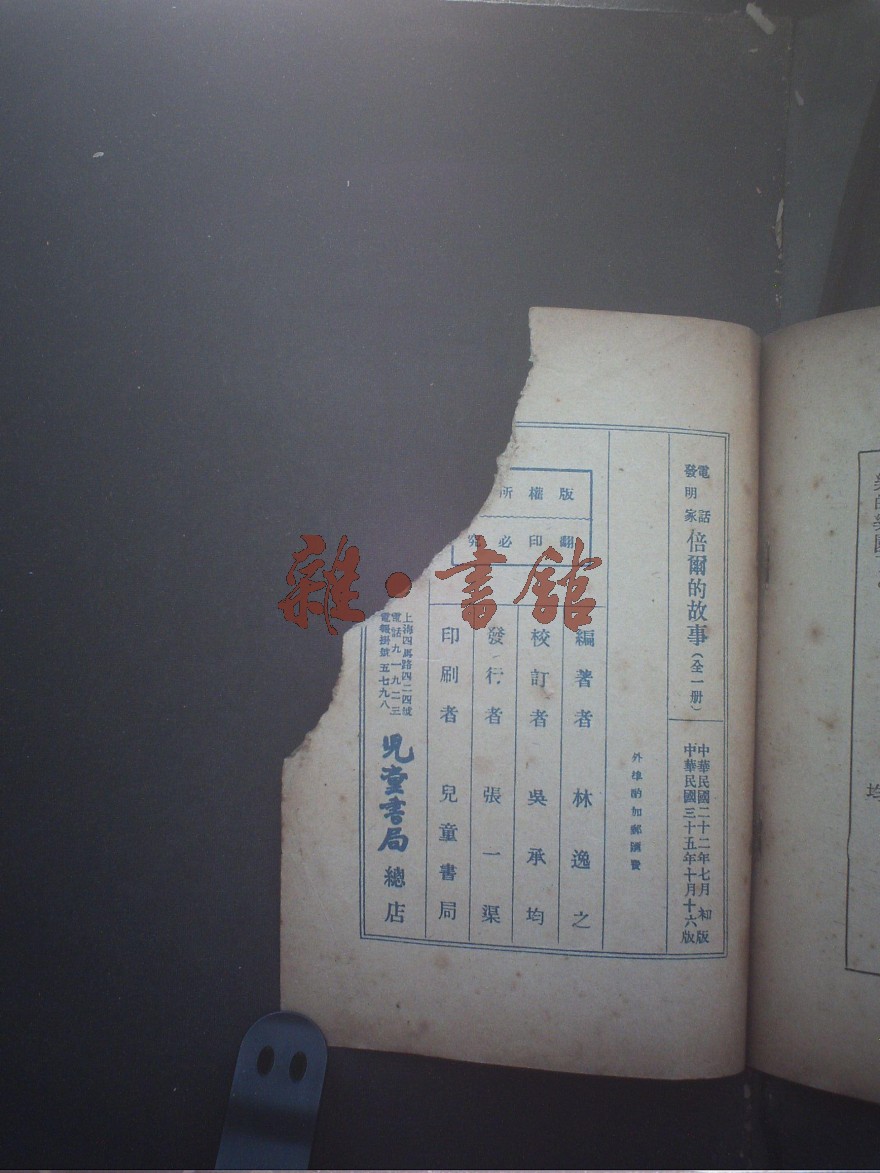 電話發明家 倍爾的故事（全一册）
中華民國二十二年七月 初版
中華民國三十五年十月十六版
外埠酌加郵匯費
版權所
翻印必究
編著者 林逸之
校訂者 吳承均
發行者 張一渠
印刷者 兒童書局
上海四馬路四二四號
電話九一九二三
電報掛號五七九八
兒童書局 總店
雜·書館
均